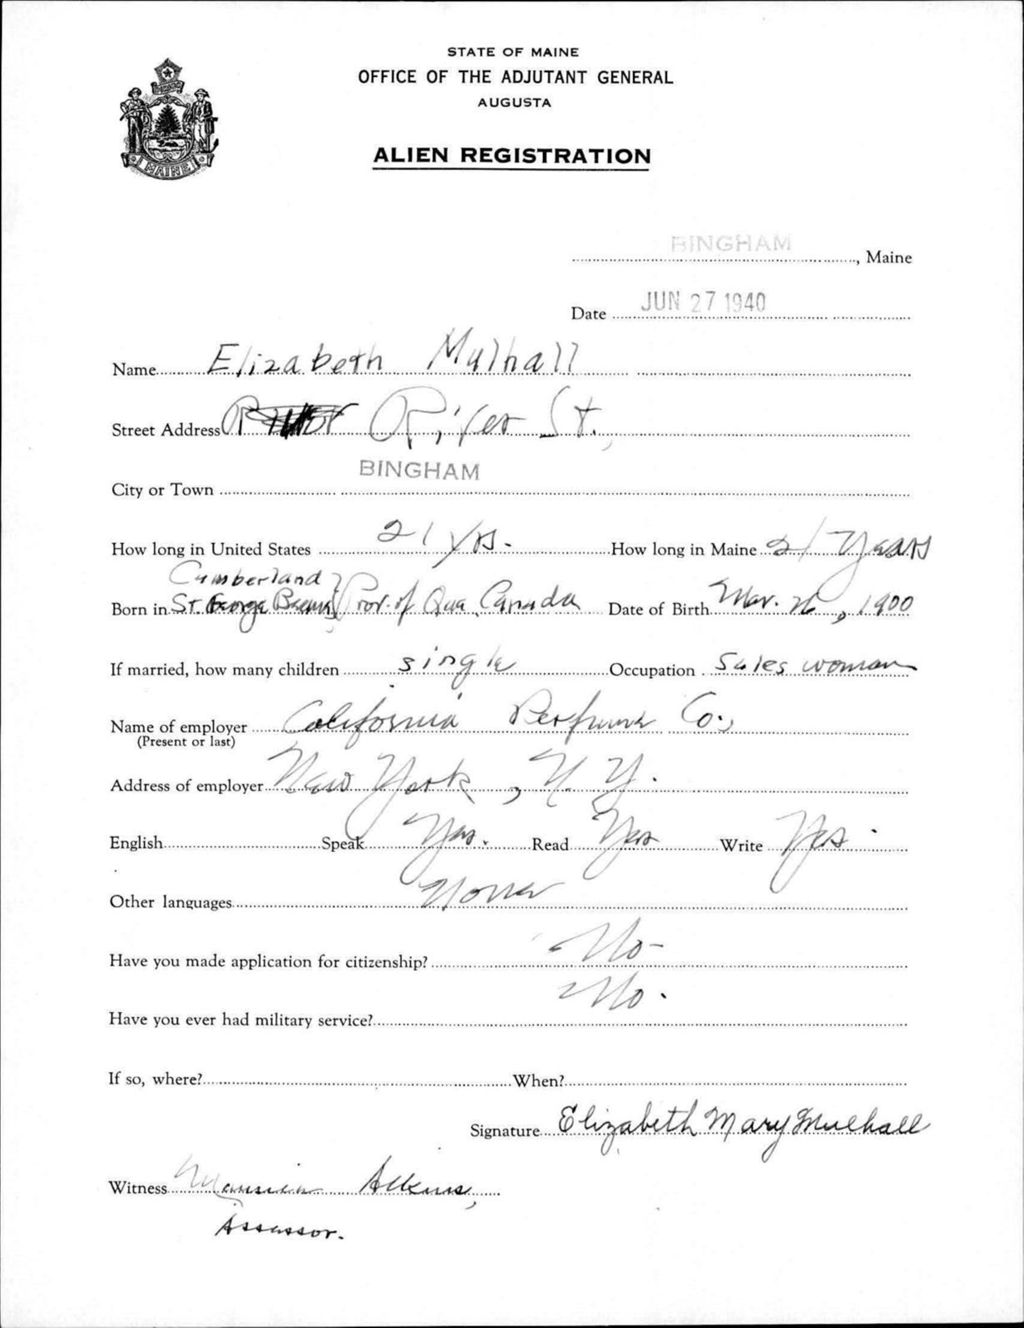 STATE OF MAINE
OFFICE OF THE ADJUTANT GENERAL
AUGUSTA
MAINE
ALIEN REGISTRATION
BINGHAM, Maine
Date JUN 27 1940
Name Elizabeth Mulhall
Street Address River St.,
City or Town BINGHAM
How long in United States 21 yrs. How long in Maine 21 Years
Cumberland
Born in St. George Prov. of Que. Canada Date of Birth Mar. 1900
If married, how many children single Occupation Sales woman
Name of employer California Perfume Co.,
(Present or last)
Address of employer New York, N.Y.
English Speak Yes. Read Yes Write Yes.
Other languages None
Have you made application for citizenship? No
Have you ever had military service? No.
If so, where? When?
Signature Elizabeth Mary Mulhall
Witness Adkins,
Assessor.